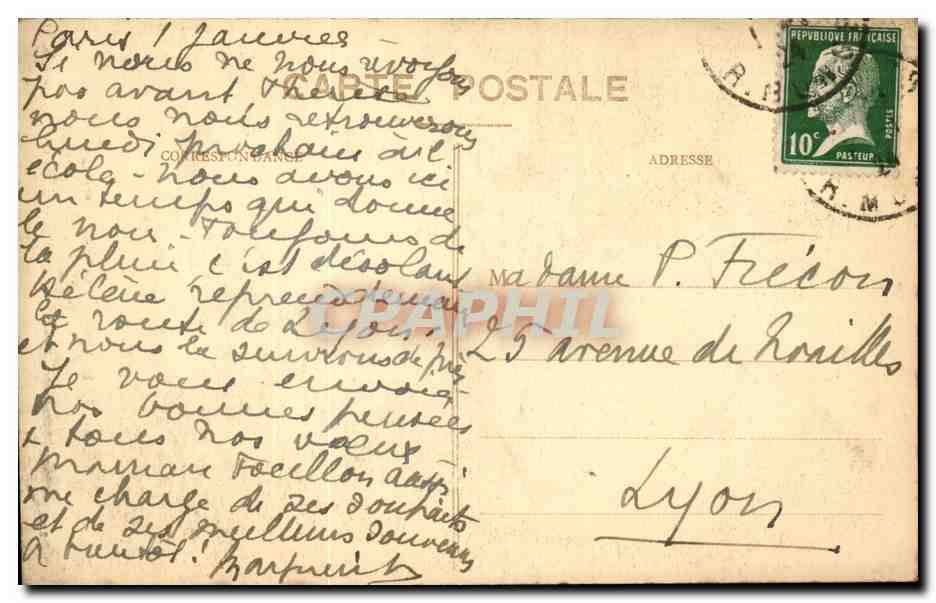 Paris 1 Janvier
Si nous ne nous voyons
pas avant
nous nous retrouverons
lundi prochain à l'
école - nous avons ici
un temps qui donne
le noir - Toujours de
la pluie c'est désolant
Hélène reprend demain
la route de Lyon
et nous la suivrons de près
Je vous envoie
nos bonnes pensées
& tous nos vœux
maman Focillon aussi
me charge de ses souhaits
et de ses meilleurs souvenirs
à bientôt! Marguerite
CARTE POSTALE
CORRESPONDANCE
ADRESSE
REPVBLIQUE FRANÇAISE
10c
POSTES
PASTEUR
Madame P. Frécon
25 avenue de Noailles
Lyon
CPRAPHIL